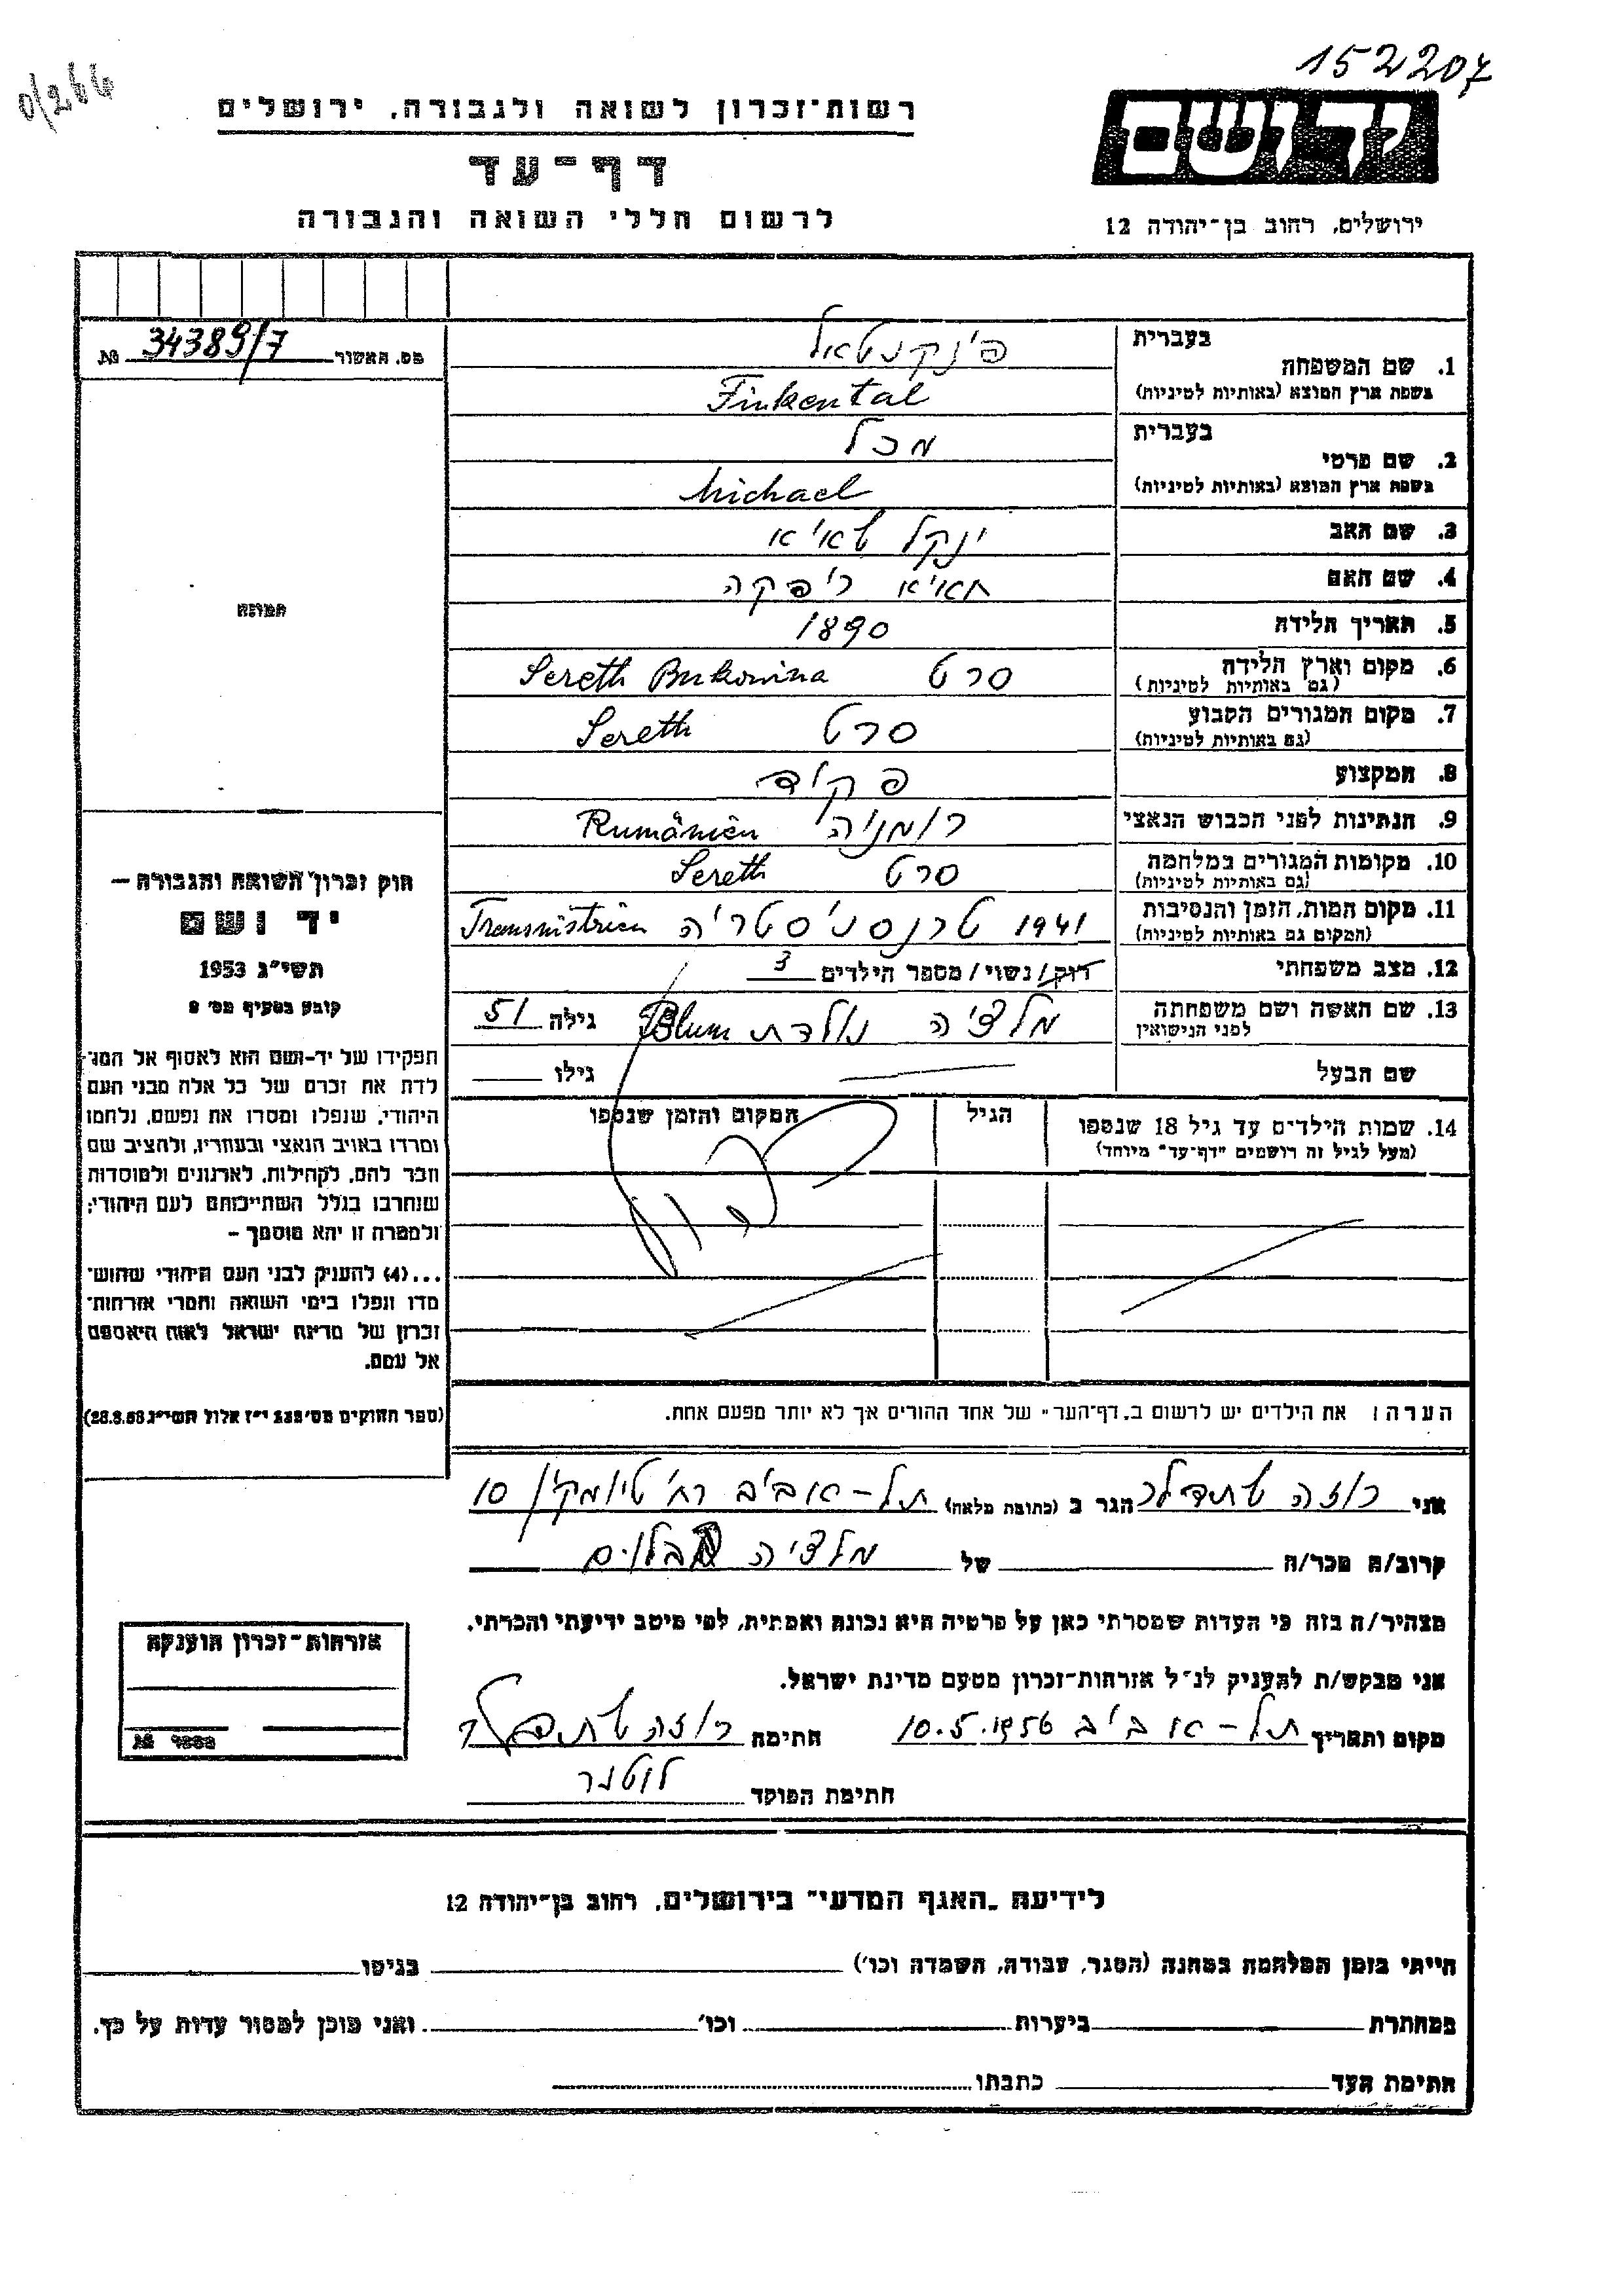 152207
0/264
יד ושם
ירושלים, רחוב בן-יהודה 12
רשות-זכרון לשואה ולגבורה, ירושלים
דף-עד
לרשום חללי השואה והגבורה
מס. האשור 34389/7 №
תמונה
חוק זכרון השואה והגבורה —
יד ושם
תשי"ג 1953
קובע בסעיף מס' 2
תפקידו של יד-ושם הוא לאסוף אל המו-
לדת את זכרם של כל אלה מבני העם
היהודי, שנפלו ומסרו את נפשם, נלחמו
ומרדו באויב הנאצי ובעוזריו, ולהציב שם
וזכר להם, לקהילות, לארגונים ולמוסדות
שנחרבו בגלל השתייכותם לעם היהודי;
ולמטרה זו יהא מוסמך —
...(4) להעניק לבני העם היהודי שהוש-
מדו ונפלו בימי השואה והמרי אזרחות-
זכרון של מדינת ישראל לאות היאספם
אל עמם.
(ספר החוקים מס' 132 י"ז אלול תשי"ג 28.8.53)
בעברית פינקנטאל
1. שם המשפחה
בשפת ארץ המוצא (באותיות לטיניות) Finkental
בעברית מכל
2. שם פרטי
בשפת ארץ המוצא (באותיות לטיניות) Michael
3. שם האב ינקל שאיא
4. שם האם חאיא ריפקה
5. תאריך הלידה 1890
6. מקום וארץ הלידה סרט Sereth Bukowina
(גם באותיות לטיניות)
7. מקום המגורים הקבוע סרט Sereth
(גם באותיות לטיניות)
8. המקצוע פקיד
9. הנתינות לפני הכבוש הנאצי רומניה Rumänien
10. מקומות המגורים במלחמה סרט Sereth
(גם באותיות לטיניות)
11. מקום המות, הזמן והנסיבות 1941 טרנסניסטריה Transnistrien
(המקום גם באותיות לטיניות)
12. מצב משפחתי רווק/נשוי/ מספר הילדים 3
13. שם האשה ושם משפחתה מלציה נולדת Blum גילה 51
לפני הנישואין
שם הבעל גילו
14. שמות הילדים עד גיל 18 שנספו הגיל המקום והזמן שנספו
(מעל לגיל זה רושמים "דף-עד" מיוחד)
הערה: את הילדים יש לרשום ב"דף-העד" של אחד ההורים אך לא יותר מפעם אחת.
אני רוזה הגר ב (כתובת מלאה) תל-אביב רח' טיומקין 10
קרוב/ה מכר/ה של מלציה בלום
מצהיר/ה בזה כי העדות שמסרתי כאן על פרטיה היא נכונה ואמתית, לפי מיטב ידיעתי והכרתי.
אני מבקש/ת להעניק לנ"ל אזרחות-זכרון מטעם מדינת ישראל.
מקום ותאריך תל-אביב 10.5.1956 חתימה רוזה
חתימת הפוקד לוטנר
אזרחות-זכרון הוענקה
לידיעת "האגף המדעי" בירושלים, רחוב בן-יהודה 12
הייתי בזמן המלחמה במחנה (הסגר, עבודה, השמדה וכו') בגיטו
במחתרת ביערות וכו' ואני מוכן למסור עדות על כך.
חתימת העד כתבתו